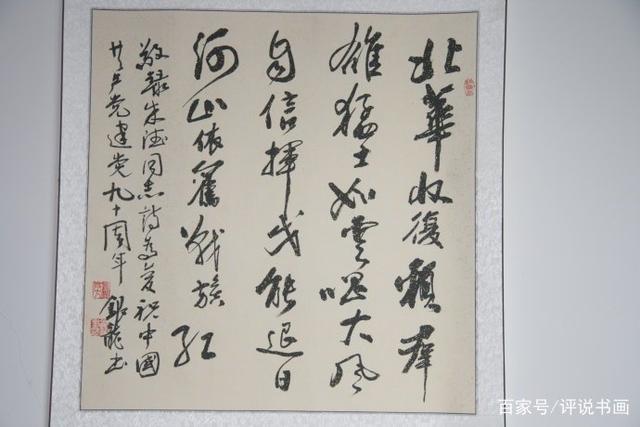 北華收復賴羣
雄猛士如雲唱大風
自信揮戈能退日
河山依舊戰旗紅
敬録朱德同志詩為慶祝中國
共产党建党九十周年 銀龍书
百家号/评说书画